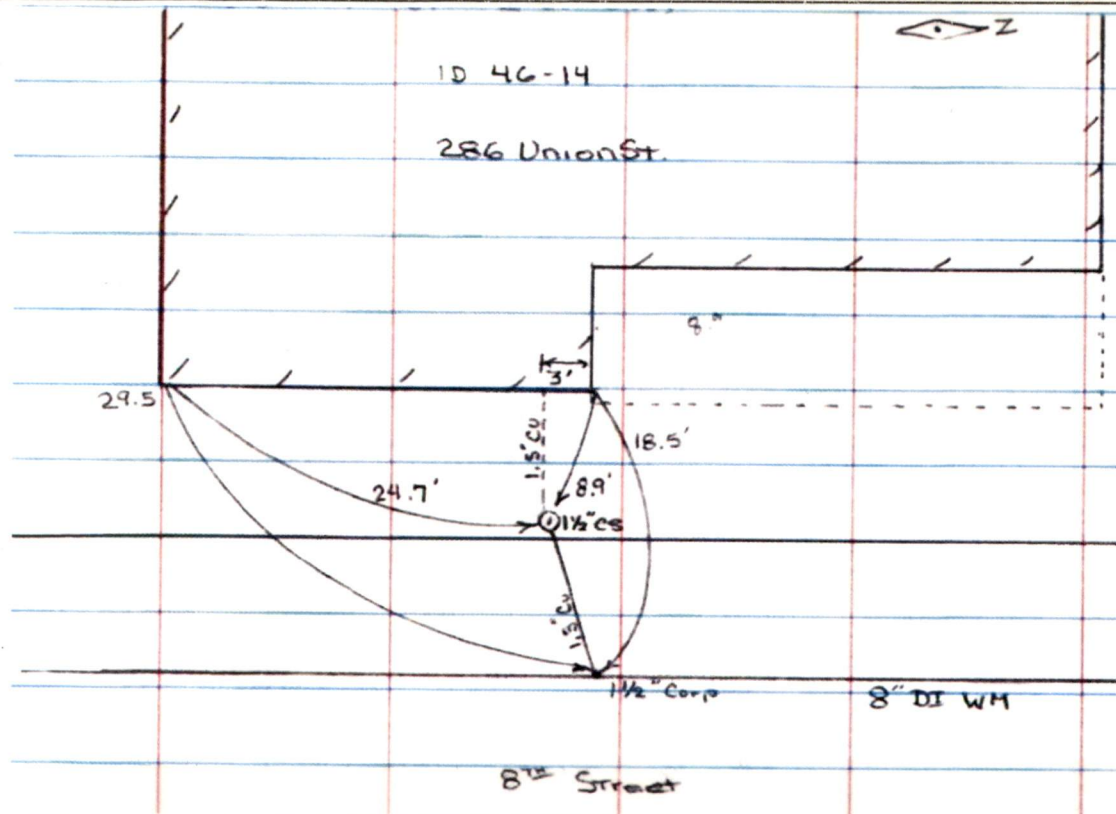 Z
ID 46-14
286 Union St.
3'
29.5
1.5" CU
18.5'
24.7'
8.9'
1½" CS
1.5" CU
1½" Corp
8" DI WM
8TH Street